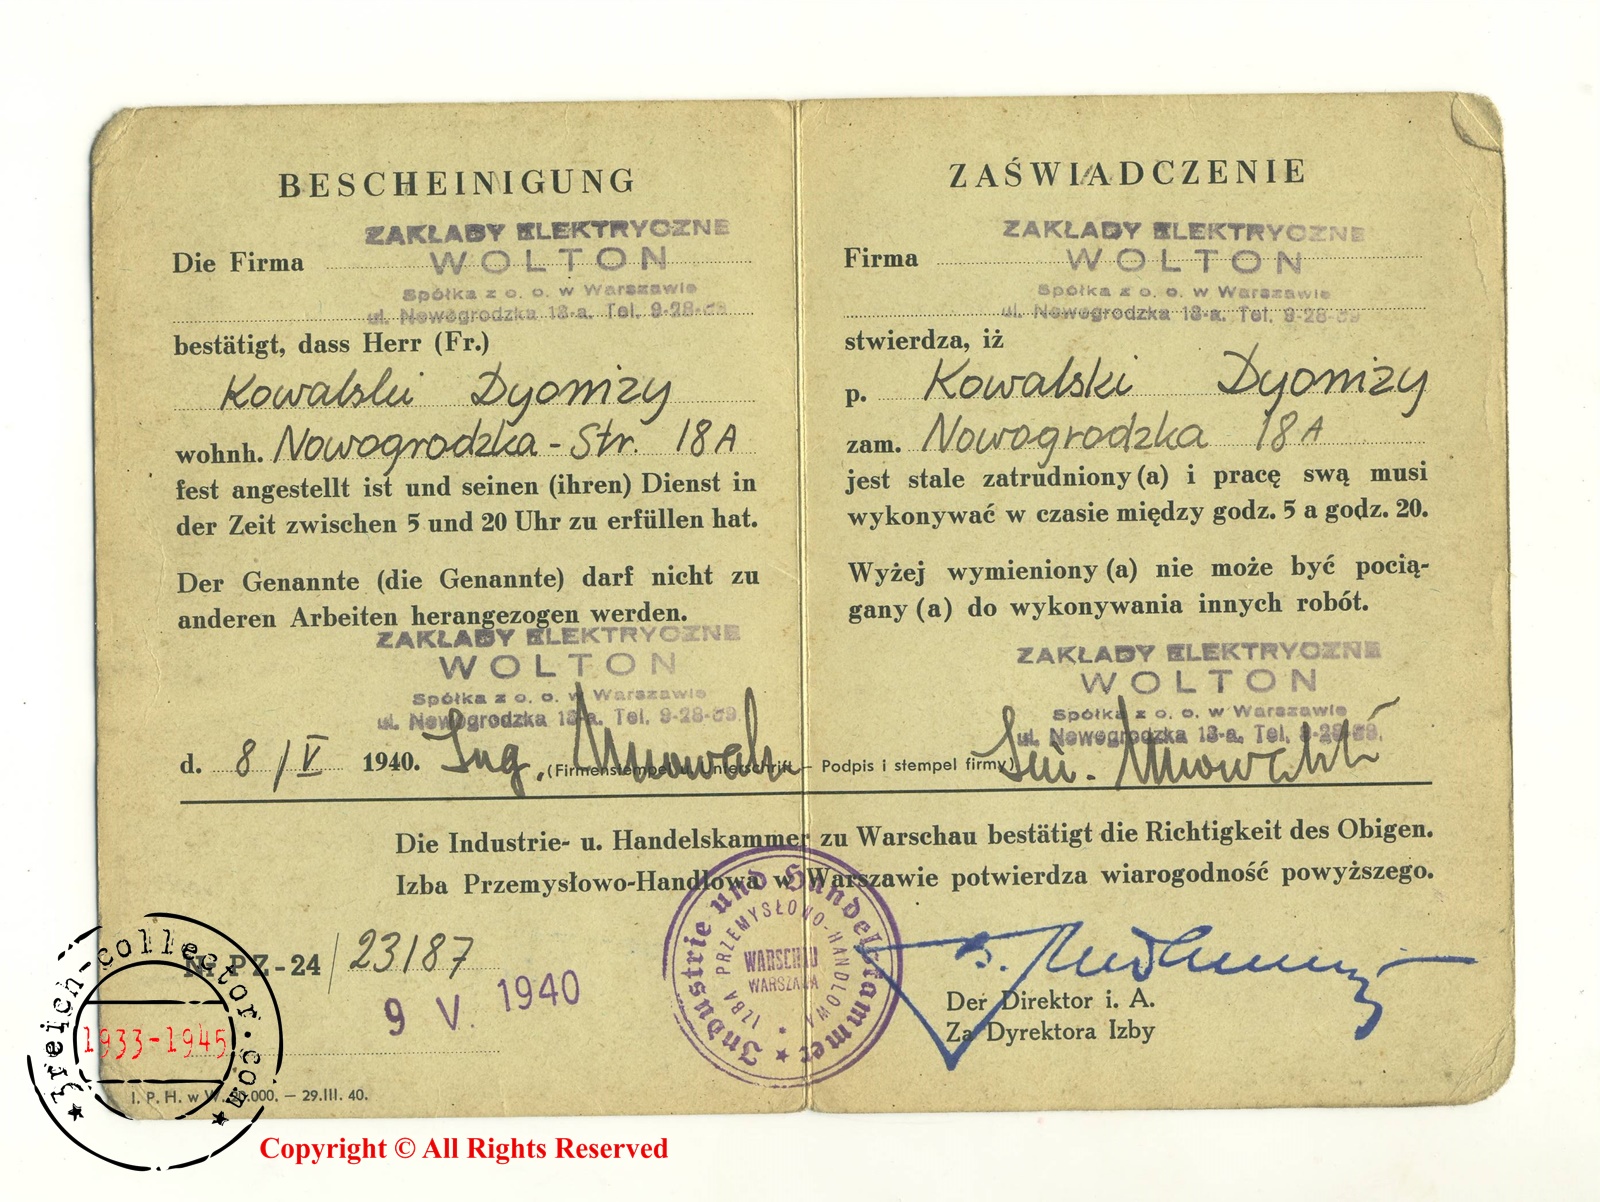 BESCHEINIGUNG
Die Firma ZAKŁADY ELEKTRYCZNE
WOLTON
Spółka z o. o. w Warszawie
ul. Nowogrodzka 18-a. Tel. 9-28-59
bestätigt, dass Herr (Fr.)
Kowalski Dyonizy
wohnh. Nowogrodzka-Str. 18A
fest angestellt ist und seinen (ihren) Dienst in
der Zeit zwischen 5 und 20 Uhr zu erfüllen hat.
Der Genannte (die Genannte) darf nicht zu
anderen Arbeiten herangezogen werden.
ZAKŁADY ELEKTRYCZNE
WOLTON
Spółka z o. o. w Warszawie
ul. Nowogrodzka 18-a. Tel. 9-28-59.
d. 8/V 1940. Ing.
(Firmenstempel u. Unterschrift – Podpis i stempel firmy)
ZAŚWIADCZENIE
Firma ZAKŁADY ELEKTRYCZNE
WOLTON
Spółka z o. o. w Warszawie
ul. Nowogrodzka 18-a. Tel. 9-28-59
stwierdza, iż
p. Kowalski Dyonizy
zam. Nowogrodzka 18A
jest stale zatrudniony (a) i pracę swą musi
wykonywać w czasie między godz. 5 a godz. 20.
Wyżej wymieniony (a) nie może być pocią-
gany (a) do wykonywania innych robót.
ZAKŁADY ELEKTRYCZNE
WOLTON
Spółka z o. o. w Warszawie
ul. Nowogrodzka 18-a. Tel. 9-28-59.
Die Industrie- u. Handelskammer zu Warschau bestätigt die Richtigkeit des Obigen.
Izba Przemysłowo-Handlowa w Warszawie potwierdza wiarogodność powyższego.
Nr PZ-24/23187
9 V. 1940
Industrie und Handelskammer
IZBA PRZEMYSŁOWO-HANDLOWA
WARSCHAU
WARSZAWA
Der Direktor i. A.
Za Dyrektora Izby
I. P. H. w W. 000. – 29.III. 40.
3reich-collector.com
1933-1945
Copyright © All Rights Reserved